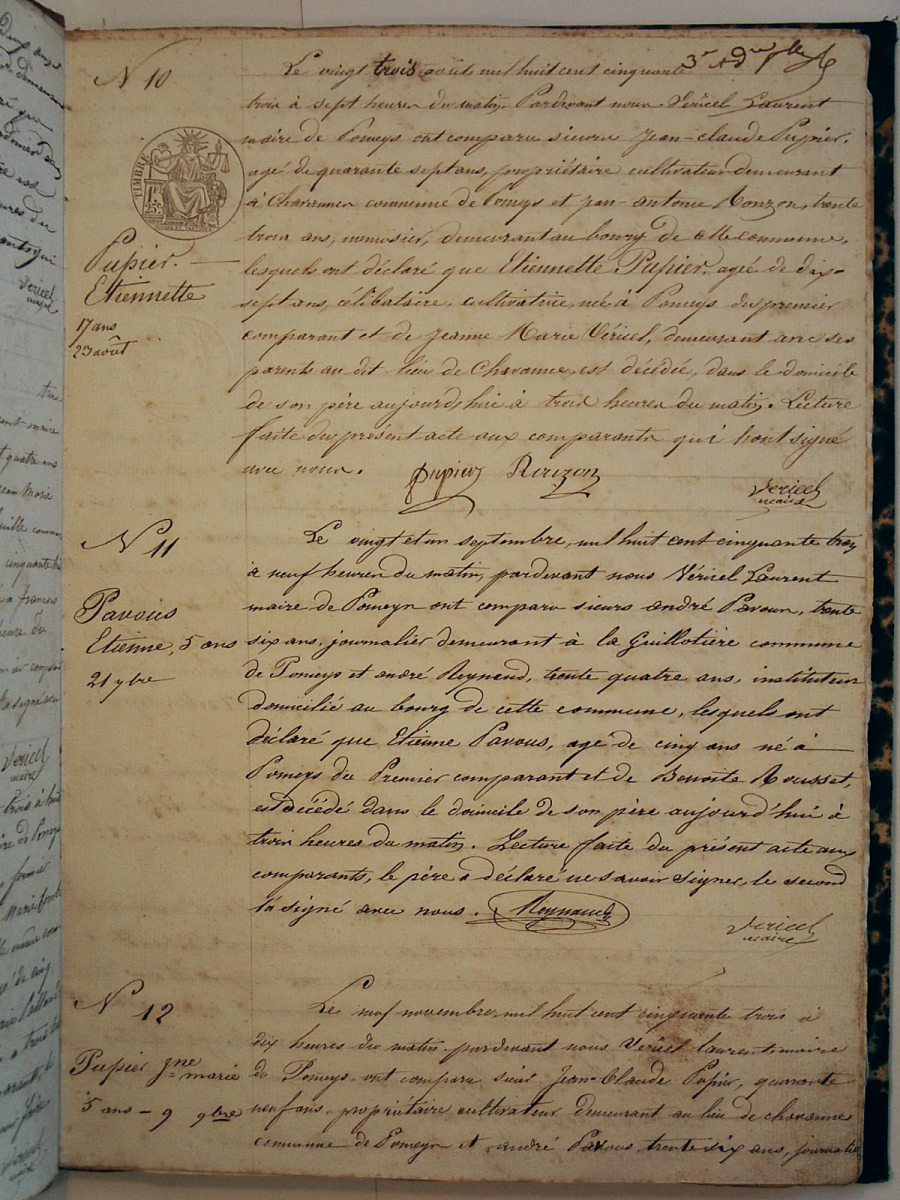 N 10
3e
Le vingt trois août mil huit cent cinquante
trois à sept heures du matin, Pardevant nous Véricel Laurent
maire de Pomeys ont comparu sieurs Jean-claude Pupier,
agé de quarante sept ans, propriétaire cultivateur demeurant
à Chavannes commune de Pomeys et jean-antoine Ronzon, trente
trois ans, menusier, demeurant au bourg de cette commune,
lesquels ont déclaré que Etiennette Pupier, agée de dix-
sept ans, célibataire, cultivatrice, née à Pomeys du premier
comparant et de Jeanne Marie Véricel, demeurant avec ses
parents au dit lieu de Chavanne, est décédée, dans le domicile
de son père aujourd'hui à trois heures du matin. Lecture
faite du présent acte aux comparants qui l'ont signé
avec nous.
Pupier Ronzon
Vericel
maire
TIMBRE
Pupier.
Etiennette
17 ans
23 août
N 11
Pavous
Etienne, 5 ans
21 7bre
Le vingt et un septembre, mil huit cent cinquante trois
à neuf heures du matin, pardevant nous Véricel Laurent
maire de Pomeys ont comparu sieurs andré Pavous, trente
six ans, journalier demeurant à la Guillotière commune
de Pomeys et andré Reynaud, trente quatre ans, instituteur
domicilié au bourg de cette commune, lesquels ont
déclaré que Etienne Pavous, agé de cinq ans né à
Pomeys du Premier comparant et de Benoite Rousset,
est décédé dans le domicile de son père aujourd'hui à
trois heures du matin. Lecture faite du présent acte aux
comparants, le père a déclaré ne savoir signer, le second
l'a signé avec nous. Reynaud
Vericel
maire
N 12
Pupier Jne marie
5 ans - 9 9bre
Le neuf novembre, mil huit cent cinquante trois à
dix heures du matin pardevant nous Vericel laurent maire
de Pomeys ont comparu sieur Jean-Claude Pupier, quarante
neuf ans, propriétaire cultivateur demeurant au lieu de chavannes
commune de Pomeys et andré Pavous trente six ans, journalier